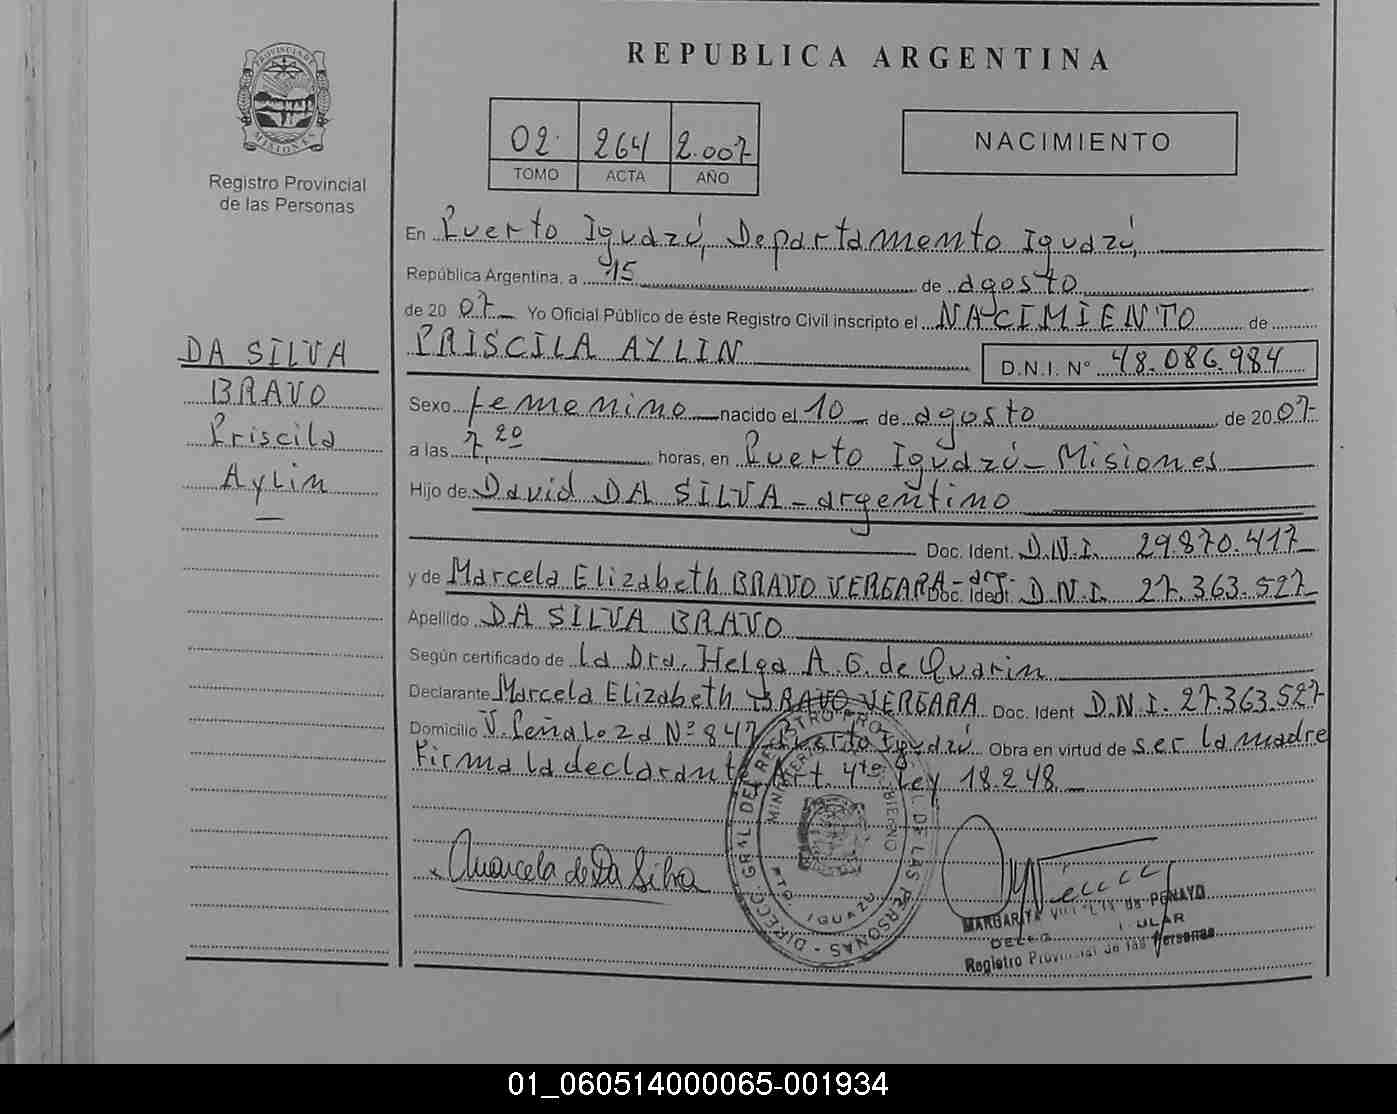 PROVINCIA DE
MISIONES
Registro Provincial
de las Personas
DA SILVA
BRAVO
Priscila
Aylin
REPUBLICA ARGENTINA
02 264 2.007
TOMO ACTA AÑO
NACIMIENTO
En Puerto Iguazú, Departamento Iguazú,
República Argentina, a 15 de agosto
de 20 07 Yo Oficial Público de éste Registro Civil inscripto el NACIMIENTO de
PRISCILA AYLIN D.N.I. Nº 48.086.984
Sexo femenino nacido el 10 de agosto de 20 07
a las 7,20 horas, en Puerto Iguazú - Misiones
Hijo de David DA SILVA - argentino
Doc. Ident. D.N.I. 29.870.417
y de Marcela Elizabeth BRAVO VERGARA - arg. Doc. Ident. D.N.I. 27.363.527
Apellido DA SILVA BRAVO
Según certificado de la Dra. Helga A. G. de Quarin
Declarante Marcela Elizabeth BRAVO VERGARA Doc. Ident D.N.I. 27.363.527
Domicilio V. Peñaloza Nº 847 Puerto Iguazú Obra en virtud de ser la madre
Firma la declarante, Art. 4to Ley 18.248
Marcela de Da Silva
DIRECC. GRAL. DEL REGISTRO DE LAS PERSONAS
PTO. IGUAZU
MARGARITA de PENAYO
Registro Provincial de las Personas
01_060514000065-001934